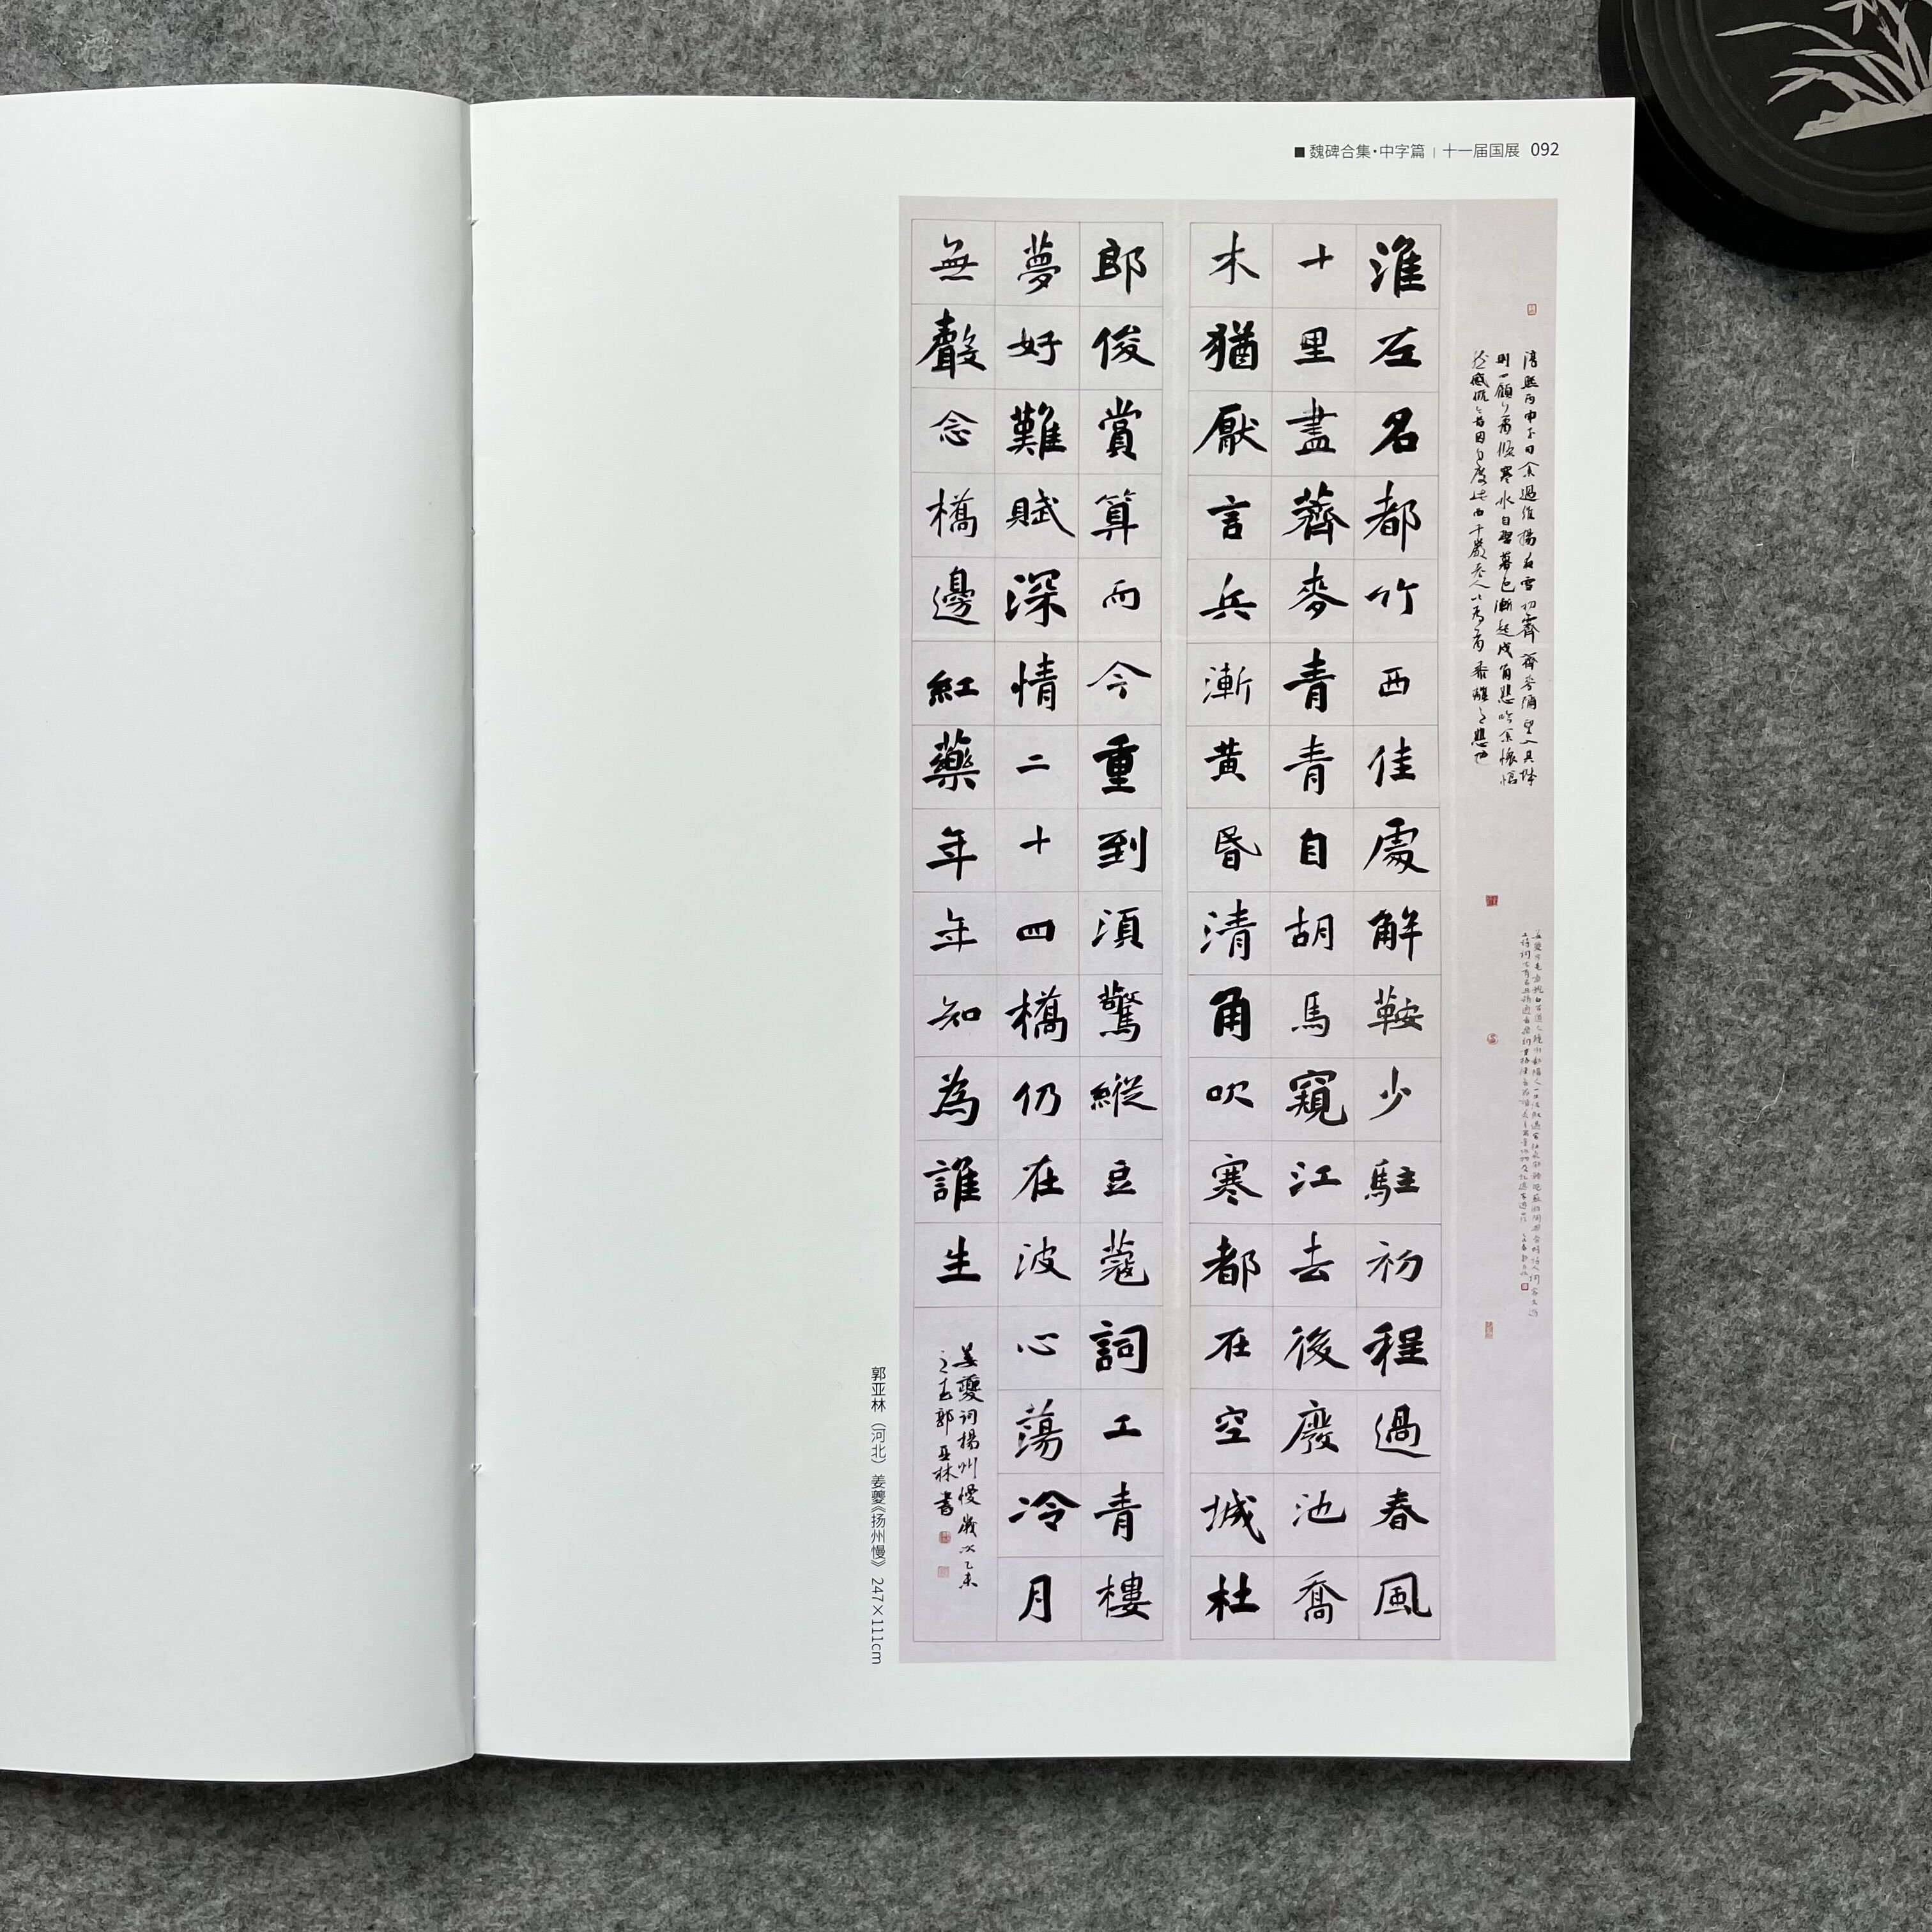 ■ 魏碑合集·中字篇 | 十一届国展 092
淳熙丙申至日余過維揚夜雪初霽薺麥彌望入其城
則四顧蕭條寒水自碧暮色漸起戍角悲吟余懷愴
然感慨今昔因自度此曲千巖老人以為有黍離之悲也
淮左名都竹西佳處解鞍少駐初程過春風
十里盡薺麥青青自胡馬窺江去後廢池喬
木猶厭言兵漸黄昏清角吹寒都在空城杜
郎俊賞算而今重到須驚縱豆蔻詞工青樓
夢好難賦深情二十四橋仍在波心蕩冷月
無聲念橋邊紅藥年年知為誰生
姜夔词揚州慢歲次乙未
郭亞林書
郭亚林（河北） 姜夔《扬州慢》 247×111cm